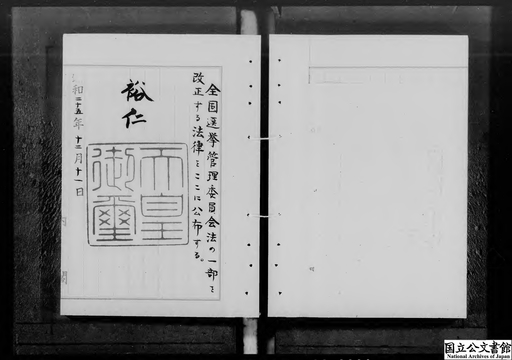 全国選挙管理委員会法の一部を
改正する法律をここに公布する。
裕仁
天皇
御璽
昭和二十五年十二月十一日
国立公文書館
National Archives of Japan